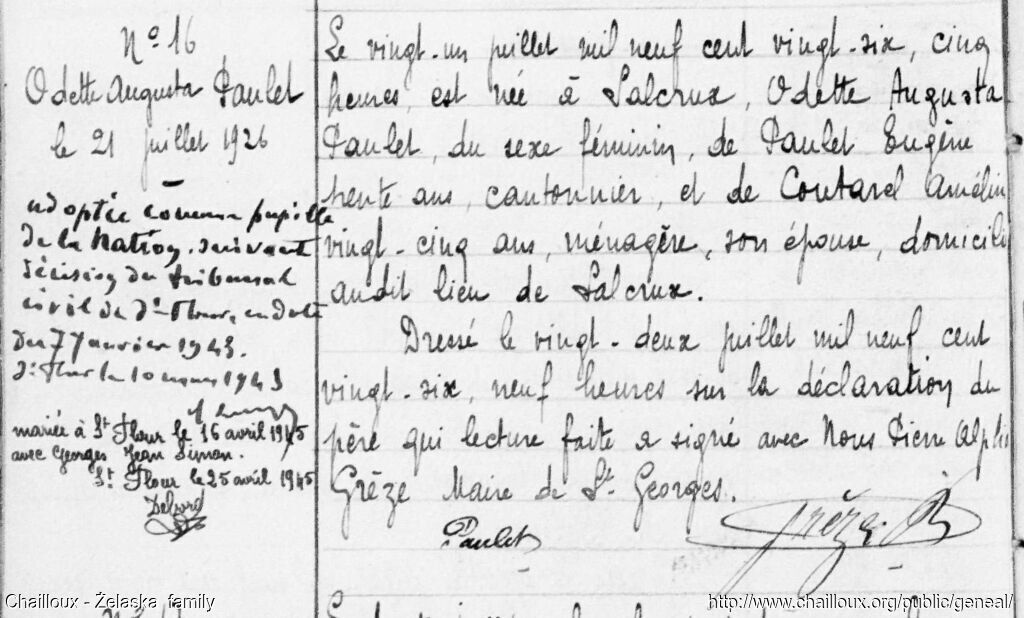 N° 16
Odette Augusta Paulet
le 21 juillet 1926
adoptée comme pupille
de la Nation, suivant
décision du tribunal
civil de St-Flour, en date
du 7 Janvier 1943.
St Flour le 10 mars 1943
mariée à St Flour le 16 avril 1945
avec Georges Jean Simon.
St Flour le 25 avril 1945
Le vingt-un juillet mil neuf cent vingt-six, cinq
heures, est née à Lalcrux, Odette Augusta
Paulet, du sexe féminin, de Paulet Eugène
trente ans, cantonnier, et de Coutarel Amélin
vingt-cinq ans, ménagère, son épouse, domicilié
audit lieu de Lalcrux.
Dressé le vingt-deux juillet mil neuf cent
vingt-six, neuf heures sur la déclaration du
père qui lecture faite a signé avec Nous Pierre Alphe
Grèze Maire de St Georges.
Paulet
Grèze P.
Chailloux - Żelaska family
http://www.chailloux.org/public/geneal/